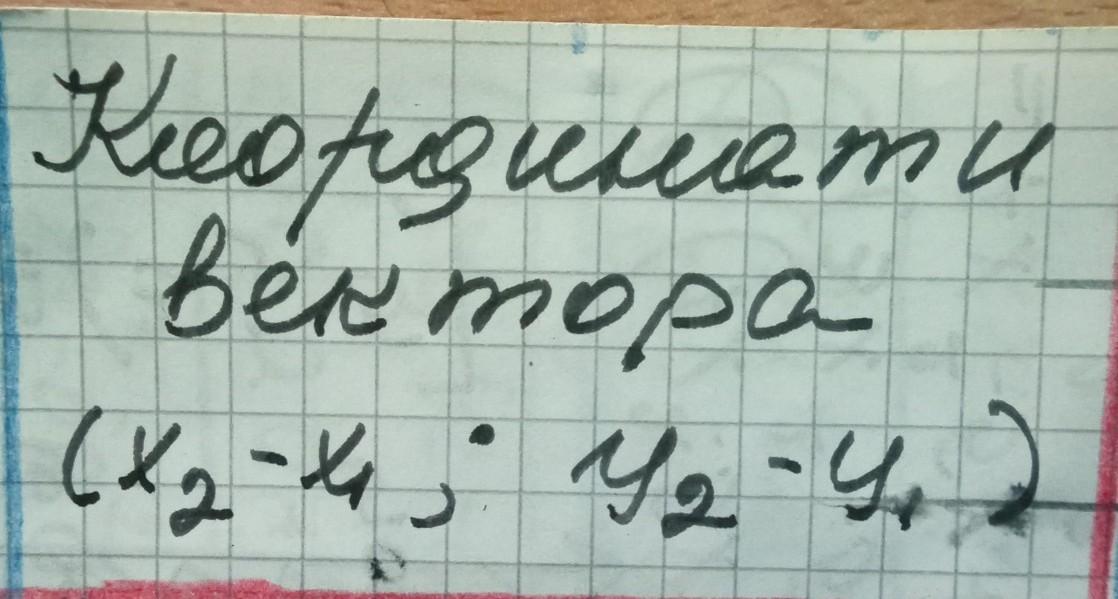 Координати
вектора
(x₂-x₁; y₂-y₁)